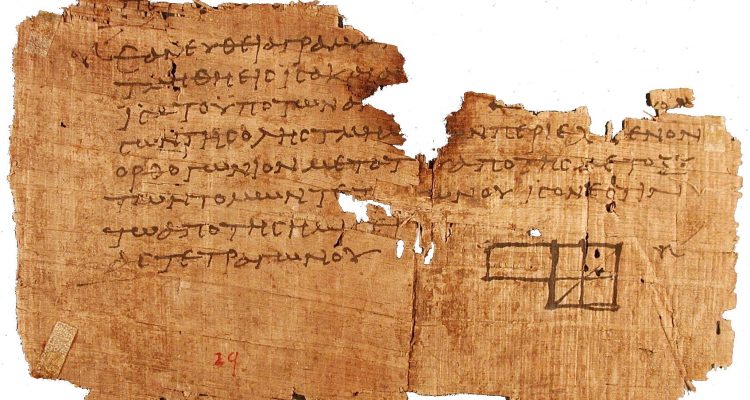 ΕΑΝΕΥΘΕΙΑΓΡΑΜΜ
ΤΜΗΘΗΕΙCΙCΑΚΑΙΑ
ΙCΑΤΟΥΠΟΤΩΝΑ
CΩΝΤΗCΟΛΗCΤΜΗΜ ΝΠΕΡΙΕΧ ΜΕΝΟΝ
ΟΡΘΟΓΩΝΙΟΝΜΕΤΟΤ ΑΠΟΤΗCΜΕΤΟΞΥ
ΤΩΝΤΟΜΩΝΤΕΤ ΩΝΟΥΙCΟΝΕCΤΙΝ
ΤΩΑΠΟΤΗCΗΜΙ
ΑCΤΕΤΡΑΓΩΝΟΥ
29